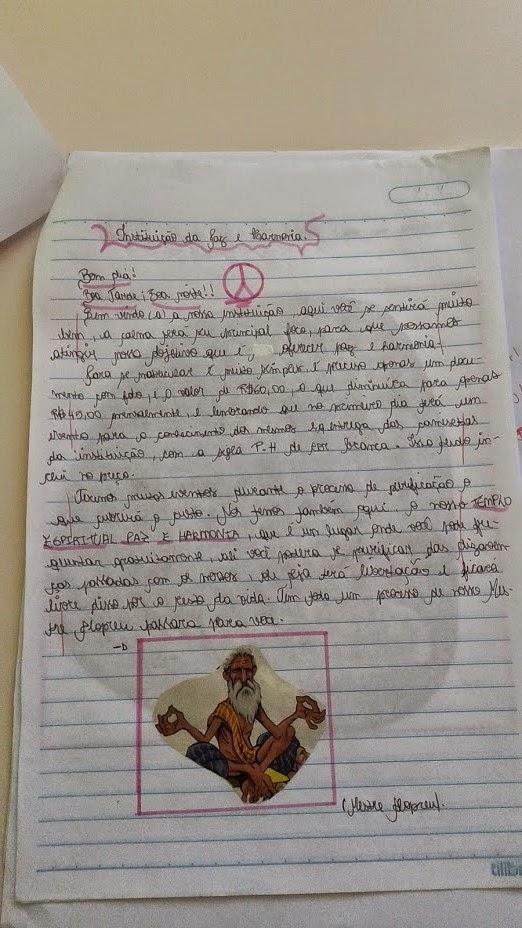 Instituição da Paz e Harmonia.
Bom dia!
Boa Tarde; Boa noite!!
Bem vindo (a) a nossa instituição, aqui você se sentirá muito
bem, a calma será seu principal foco, para que possamos
atingir nosso objetivo que é, oferecer paz e harmonia.
Para se matricular é muito simples. É preciso apenas um docu-
mento com foto, e o valor de R$60,00, o que diminuira para apenas
R$40,00 mensalmente, e lembrando que no primeiro dia terá um
evento para o conhecimento dos mesmos e a entrega das camisetas
da instituição, com a sigla P.H de cor branca. Isso tendo in-
cluí no preço.
Teremos muitos eventos durante o processo de purificação o
que cubrirá o custo. Nós temos também aqui, o nosso TEMPLO
ESPIRITUAL PAZ E HARMONIA, que é um lugar onde você pode fre-
quentar gratuitamente, ali você poderá se purificar das
passadas com os nossos, ou seja terá libertação e ficará
livre disso por o resto da vida. Tem todo um processo de nosso Mes-
tre passara para você.
(Mestre
tilibra